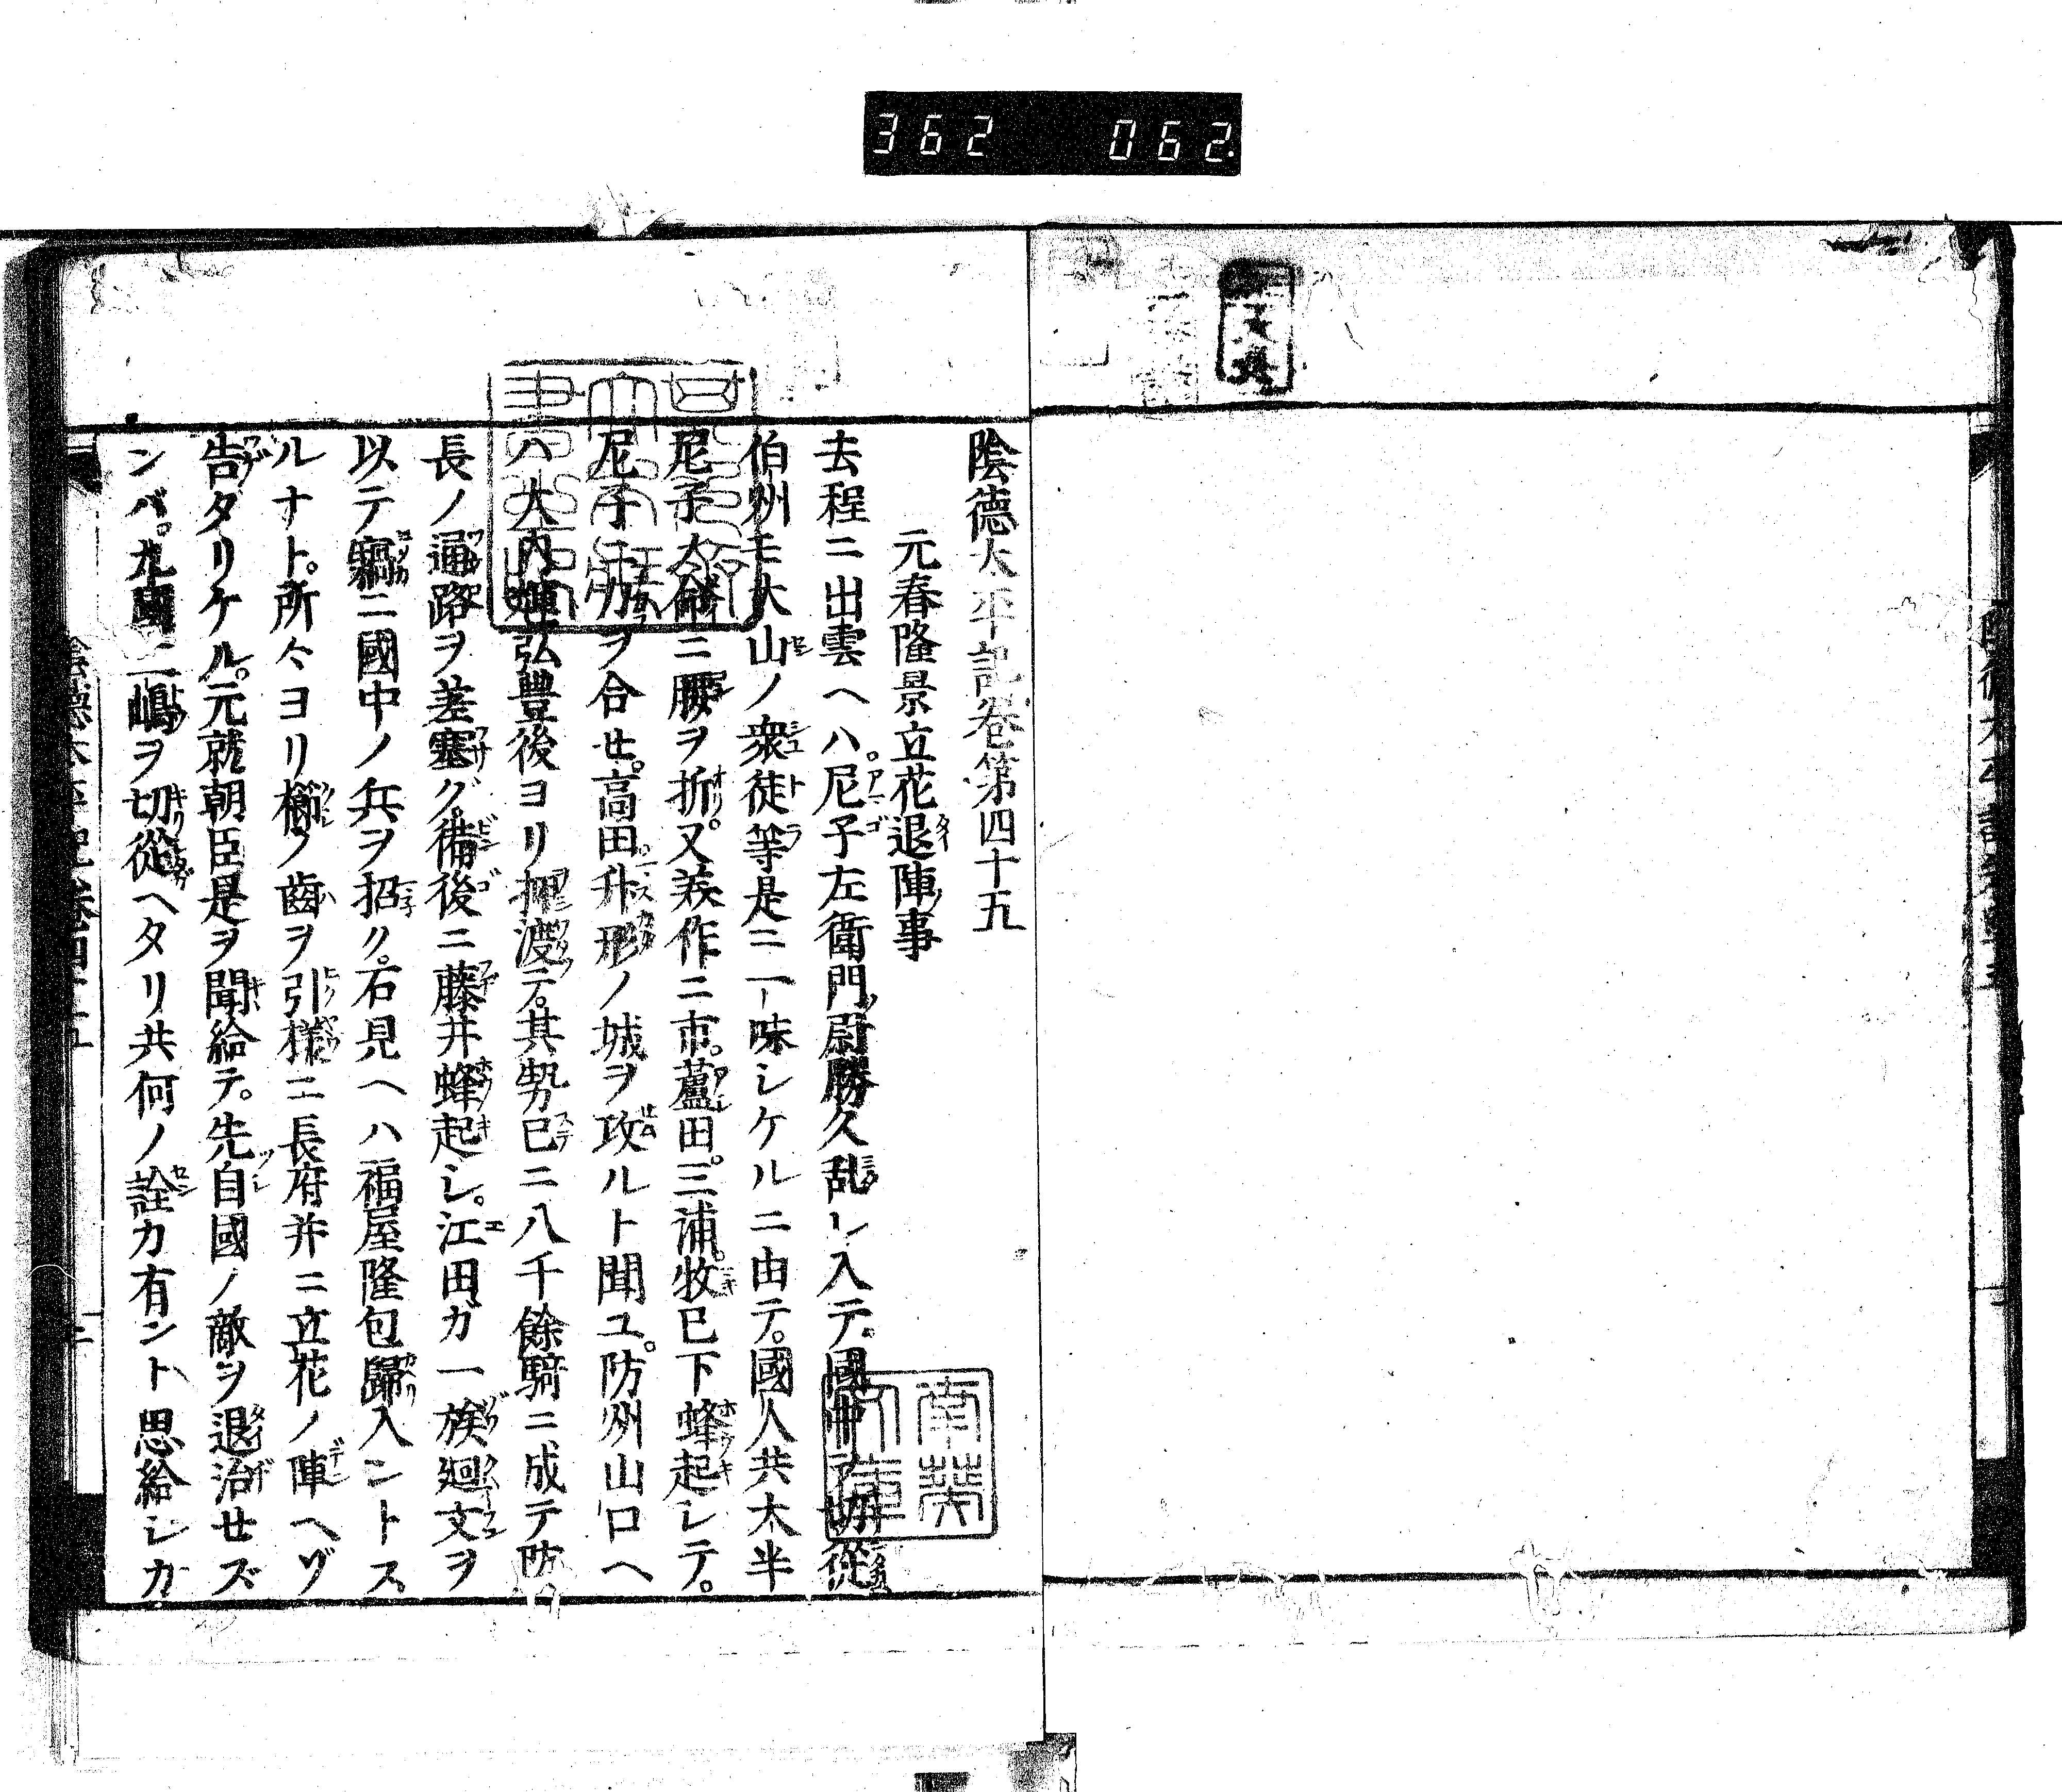 362 062
陰德太平記卷第四十五
元春隆景立花退陣事
去程ニ出雲ヘハ。尼子左衛門尉勝久乱レ入テ。國中ヲ切從
伯州モ大山ノ衆徒等是ニ一味シケルニ由テ。國人共太半
尼子ニ腰ヲ折。又美作ニ市。蘆田。三浦。牧已下蜂起シテ。
尼子ニ力ヲ合せ。高田升形ノ城ヲ攻ルト聞ユ。防州山口ヘ
ハ大内輝弘豊後ヨリ押渡テ。其勢已ニ八千餘騎ニ成テ防
長ノ通路ヲ差塞グ。備後ニ藤井蜂起シ。江田ガ一族廻文ヲ
以テ竊ニ國中ノ兵ヲ招ク。石見ヘハ福屋隆包歸入ントス
ルナト。所々ヨリ櫛ノ齒ヲ引樣ニ長府并ニ立花ノ陣ヘゾ
告タリケル。元就朝臣是ヲ聞給テ。先自國ノ敵ヲ退治せズ
ンバ。九國二嶋ヲ切從ヘタリ共何ノ詮カ有ント思給シカ